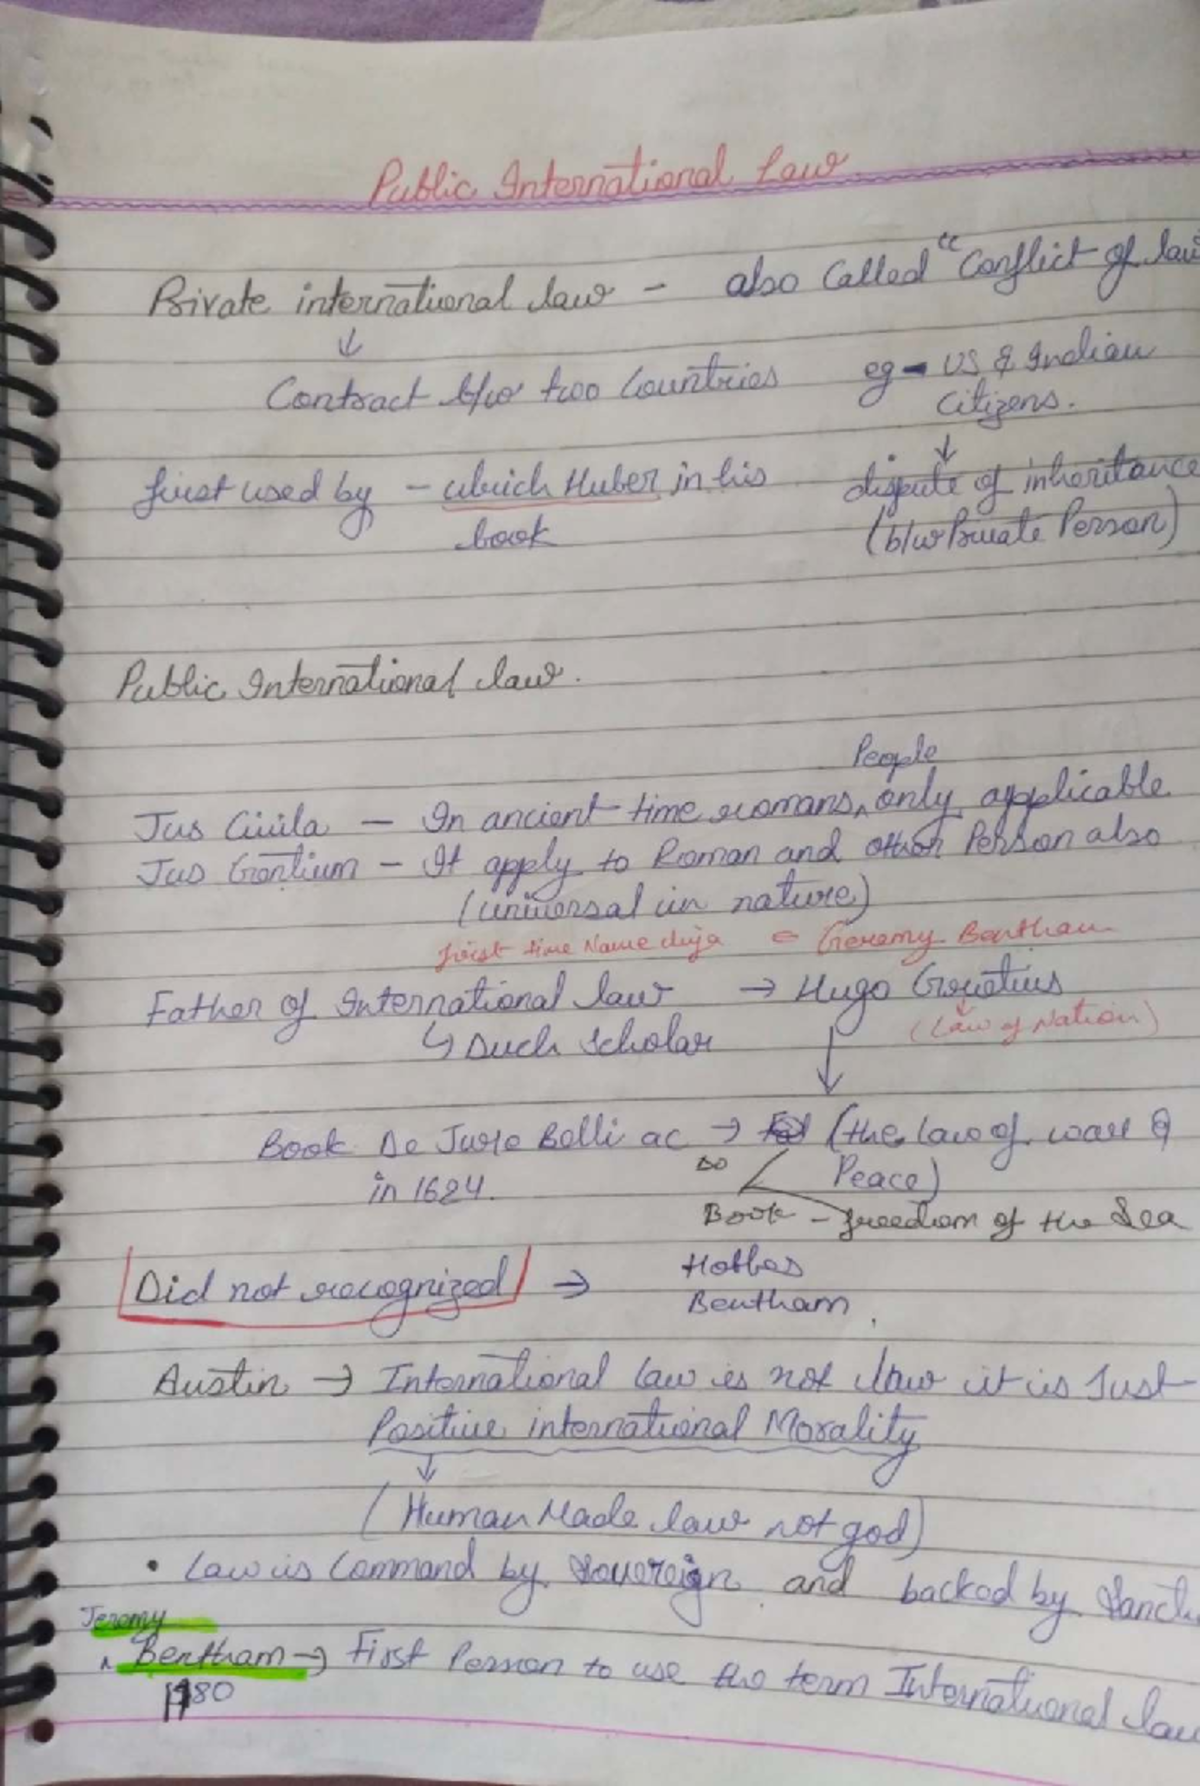 Public International Law
Private international law - also Called "Conflict of law
↓
Contract b/w two Countries eg - US & Indian
Citizens.
↓
first used by - ulrich Huber in his dispute of inheritance
book (b/w Private Person)
Public International law.
People
Jus Civila - In ancient time romans, only applicable
Jus Gentium - It apply to Roman and other Person also
(universal in nature)
first time Name diya = Geremy Bentham
Father of International law → Hugo Grotius
↳ Duch Scholar (Law of Nation)
Book De Jure Belli ac → (the law of war &
in 1624. Peace)
Book - freedom of the Sea
Did not recognized → Hobbes
Bentham
Austin → International law is not law it is Just
Positive international Morality
↓
(Human Made law not god)
• Law is Command by Sovereign and backed by
Jeremy
Bentham → First Person to use the term International law
1780